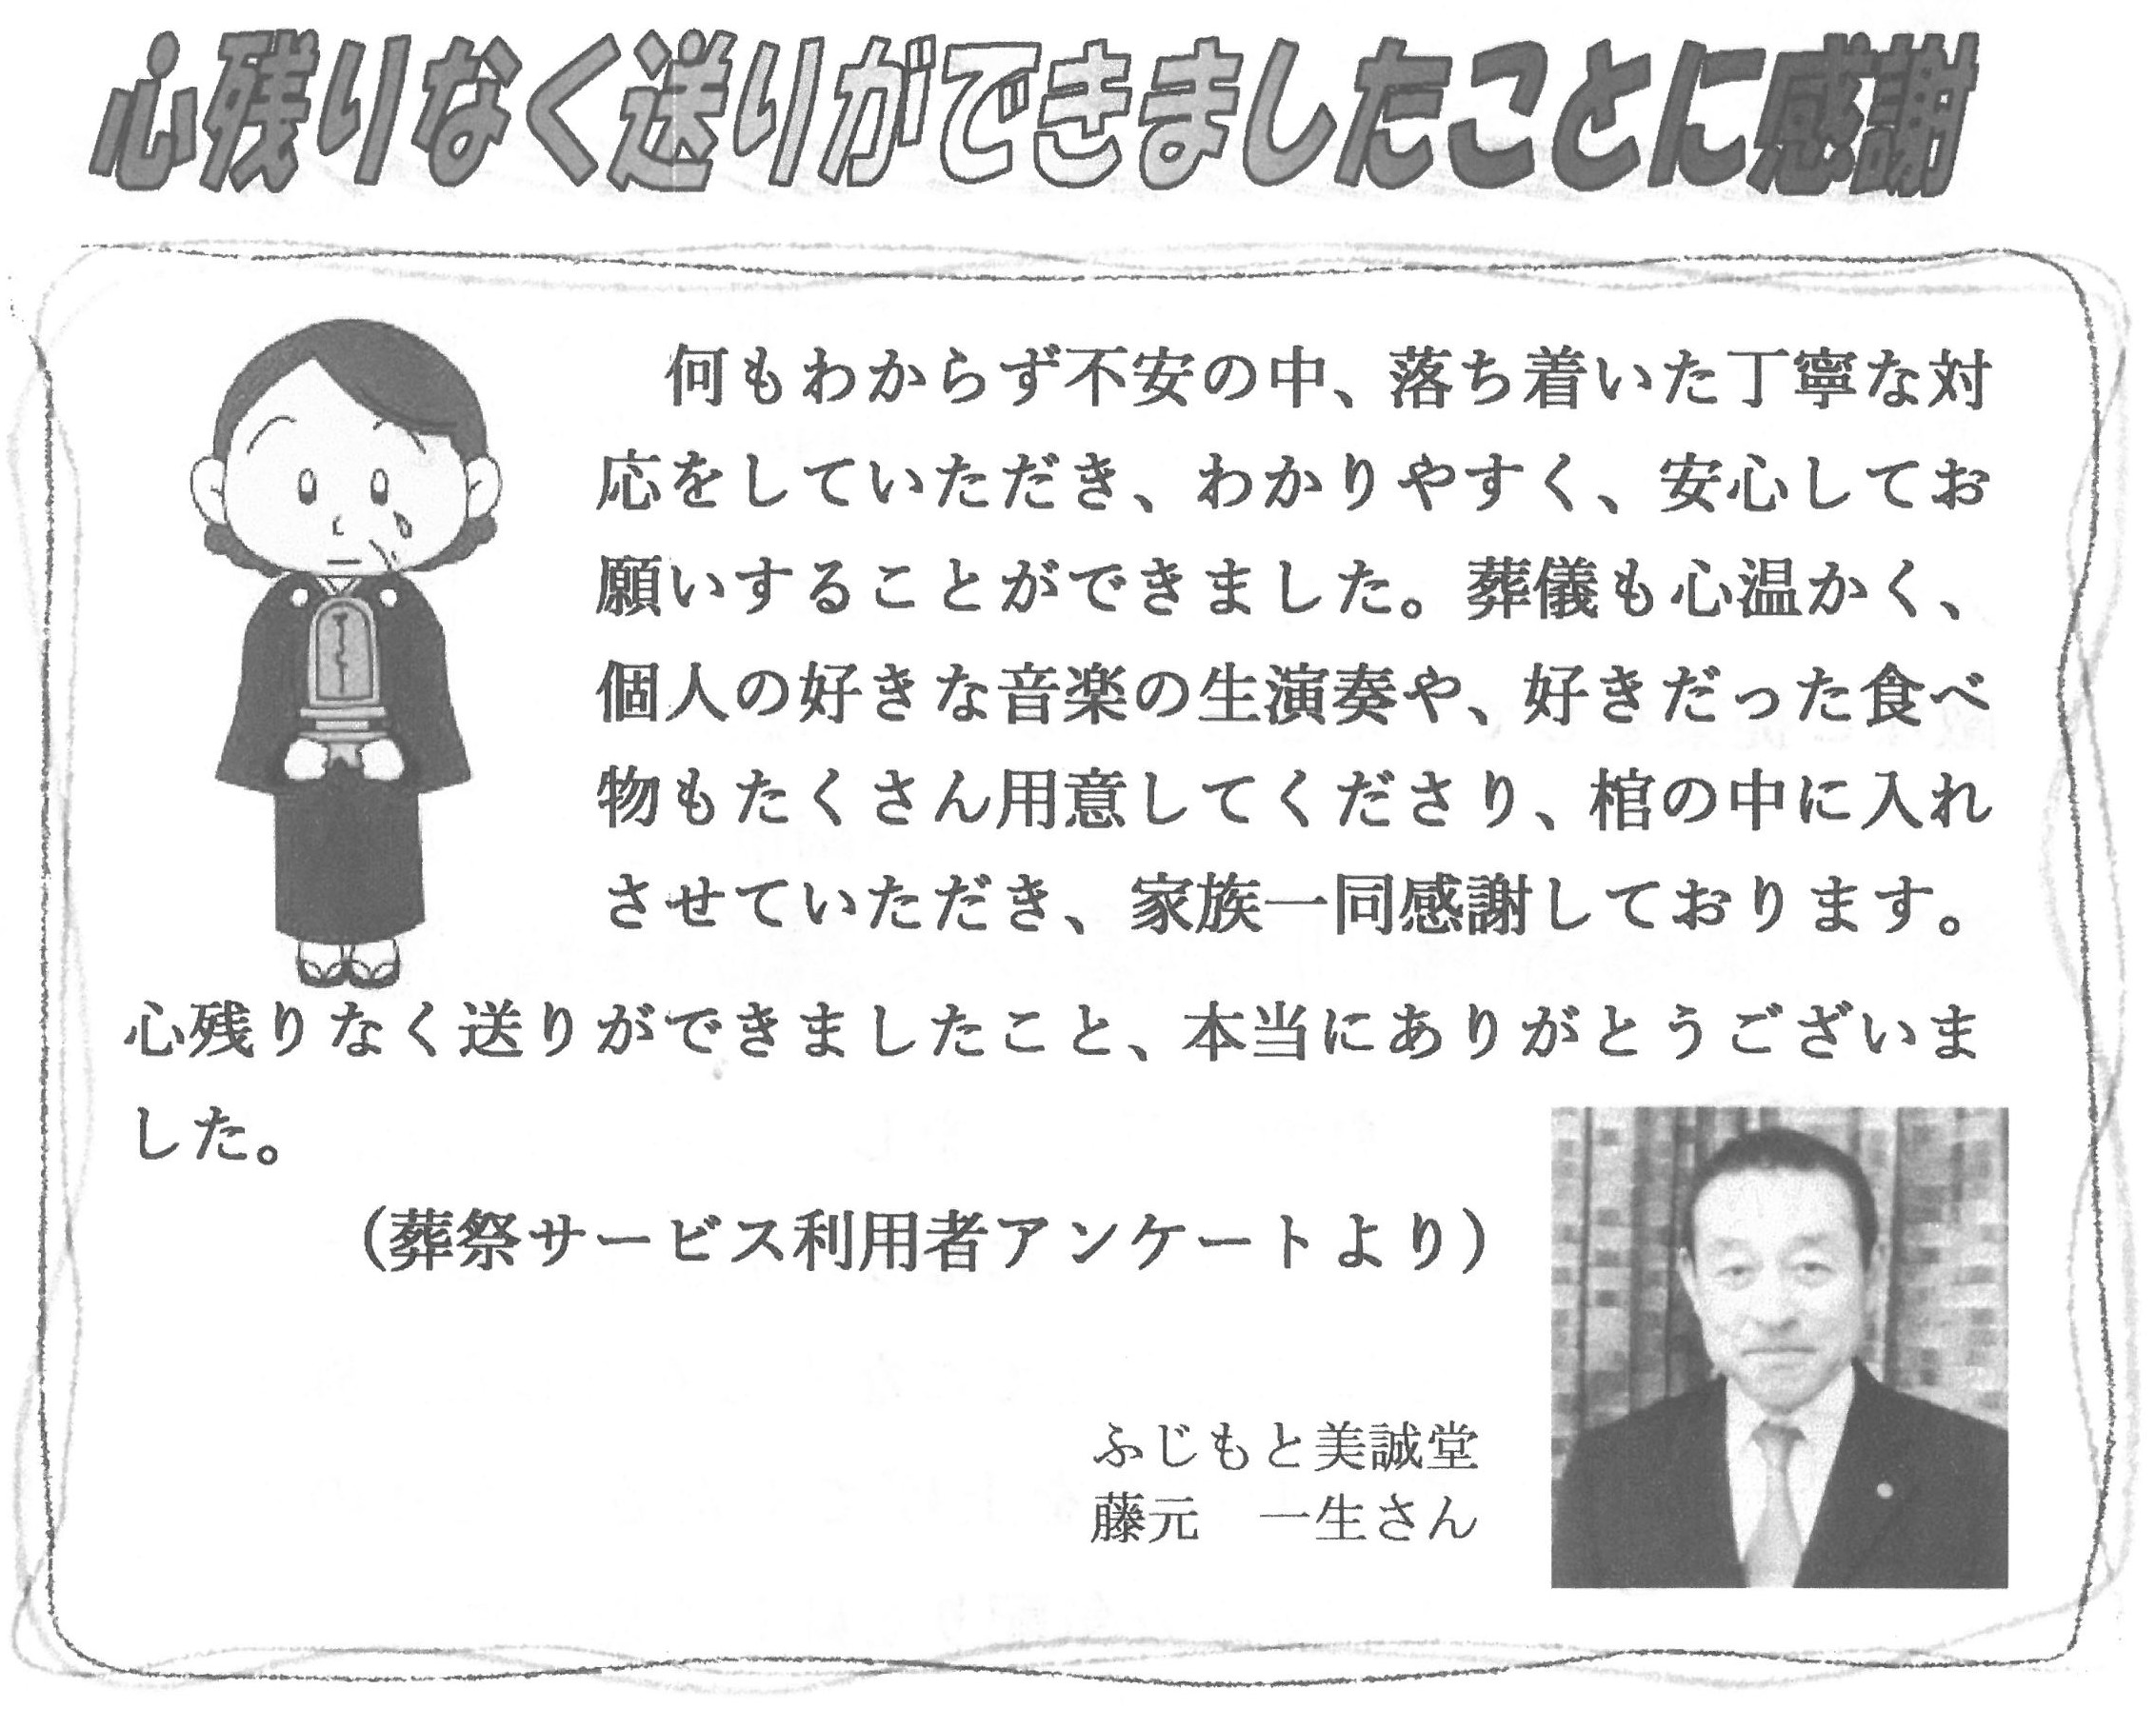 心残りなく送りができましたことに感謝
何もわからず不安の中、落ち着いた丁寧な対
応をしていただき、わかりやすく、安心してお
願いすることができました。葬儀も心温かく、
個人の好きな音楽の生演奏や、好きだった食べ
物もたくさん用意してくださり、棺の中に入れ
させていただき、家族一同感謝しております。
心残りなく送りができましたこと、本当にありがとうございま
した。
（葬祭サービス利用者アンケートより）
ふじもと美誠堂
藤元　一生さん